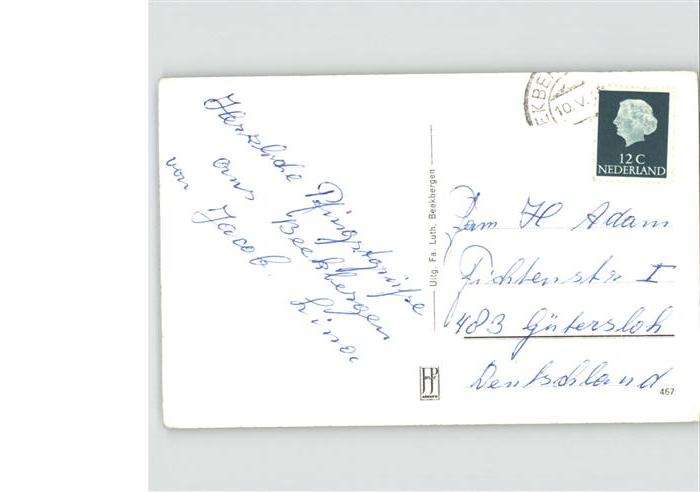 Herzliche Pfingstgrüße
aus Beekbergen
von Jacob. Lina
Uitg. Fa. Luth. Beekbergen
EKBE
10.V.
12 C
NEDERLAND
Fam H Adam
Fichtenstr I
483 Gütersloh
Deutschland
467